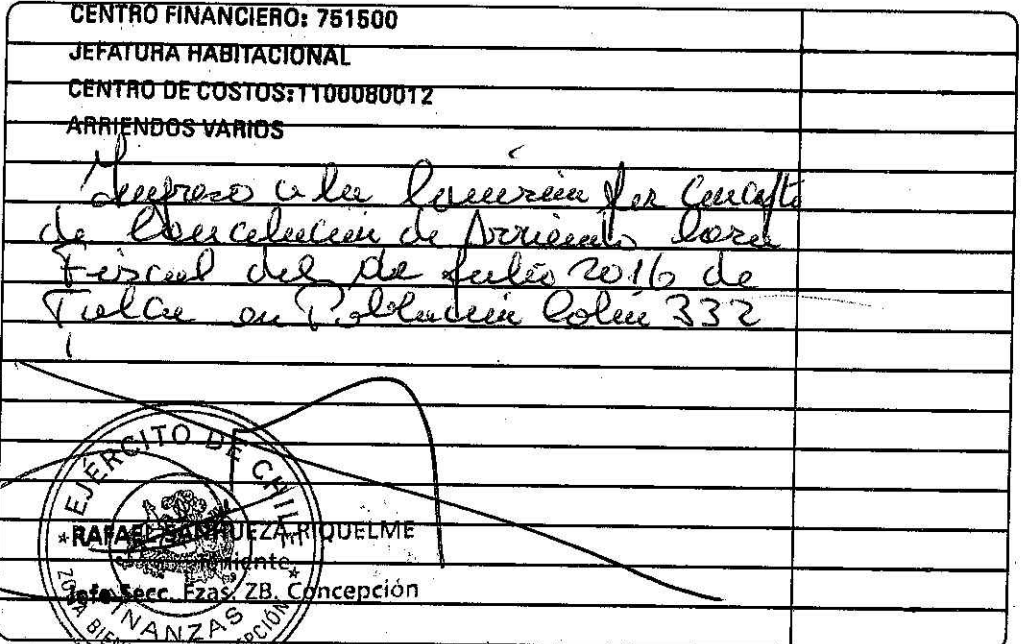 CENTRO FINANCIERO: 751500
JEFATURA HABITACIONAL
CENTRO DE COSTOS: 1100080012
ARRIENDOS VARIOS
Ingreso a la por Concepto
de Cancelación de Arriendo Casa
Fiscal del de Julio 2016 de
Talca en Población Colín 332
EJÉRCITO DE CHILE
RAFAEL SANHUEZA RIQUELME
Teniente
Jefe Secc. Fzas. ZB. Concepción
FINANZAS